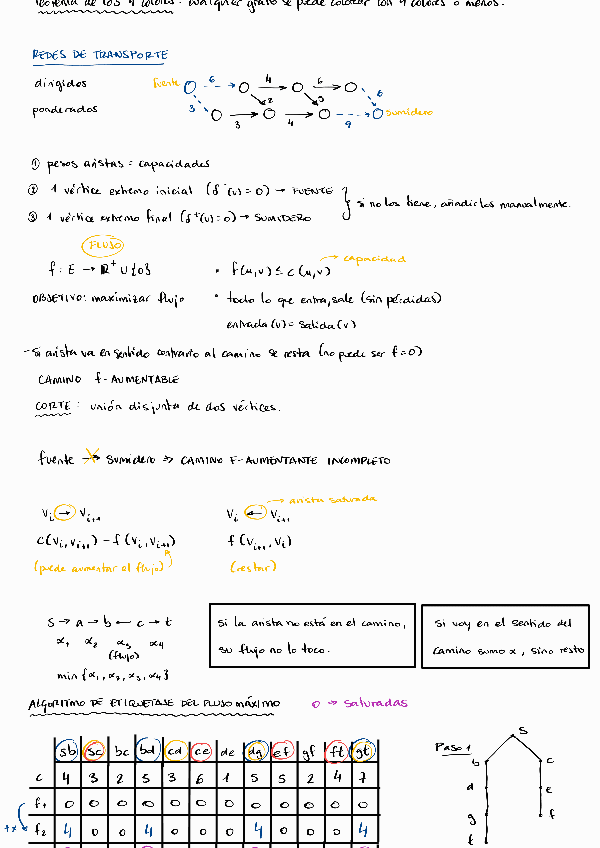 Teorema de los 4 colores: cualquier grafo se puede colorear con 4 colores o menos.
REDES DE TRANSPORTE
dirigidos
ponderados
fuente
6
4
6
6
3
2
3
3
4
9
sumidero
① pesos aristas = capacidades
② 1 vértice extremo inicial (δ⁻(v) = 0) → FUENTE
③ 1 vértice extremo final (δ⁺(v) = 0) → SUMIDERO
si no los tiene, añadirlos manualmente.
FLUJO
f: E → R⁺ ∪ {0}
• f(u,v) ≤ c(u,v)
→ capacidad
OBJETIVO: maximizar flujo
• todo lo que entra, sale (sin pérdidas)
entrada(v) = salida(v)
- Si arista va en sentido contrario al camino se resta (no puede ser f=0)
CAMINO f-AUMENTABLE
CORTE: unión disjunta de dos vértices.
fuente → sumidero => CAMINO F-AUMENTANTE INCOMPLETO
→ arista saturada
Vᵢ → Vᵢ₊₁
Vᵢ ← Vᵢ₊₁
c(Vᵢ,Vᵢ₊₁) - f(Vᵢ,Vᵢ₊₁)
f(Vᵢ₊₁,Vᵢ)
(puede aumentar el flujo)
(restar)
S → a → b ← c → t
α₁ α₂ α₃ α₄
(flujo)
min {α₁, α₂, α₃, α₄}
Si la arista no está en el camino,
su flujo no lo toco.
Si voy en el sentido del
camino sumo x, sino resto
ALGORITMO DE ETIQUETAJE DEL FLUJO MÁXIMO
O → saturadas
sb sc bc bd cd ce de dg ef gf ft gt
c 4 3 2 5 3 6 1 5 5 2 4 7
f₁ 0 0 0 0 0 0 0 0 0 0 0 0
+x
f₂ 4 0 0 4 0 0 0 4 0 0 0 4
Paso 1
S
b c
d e
g f
t